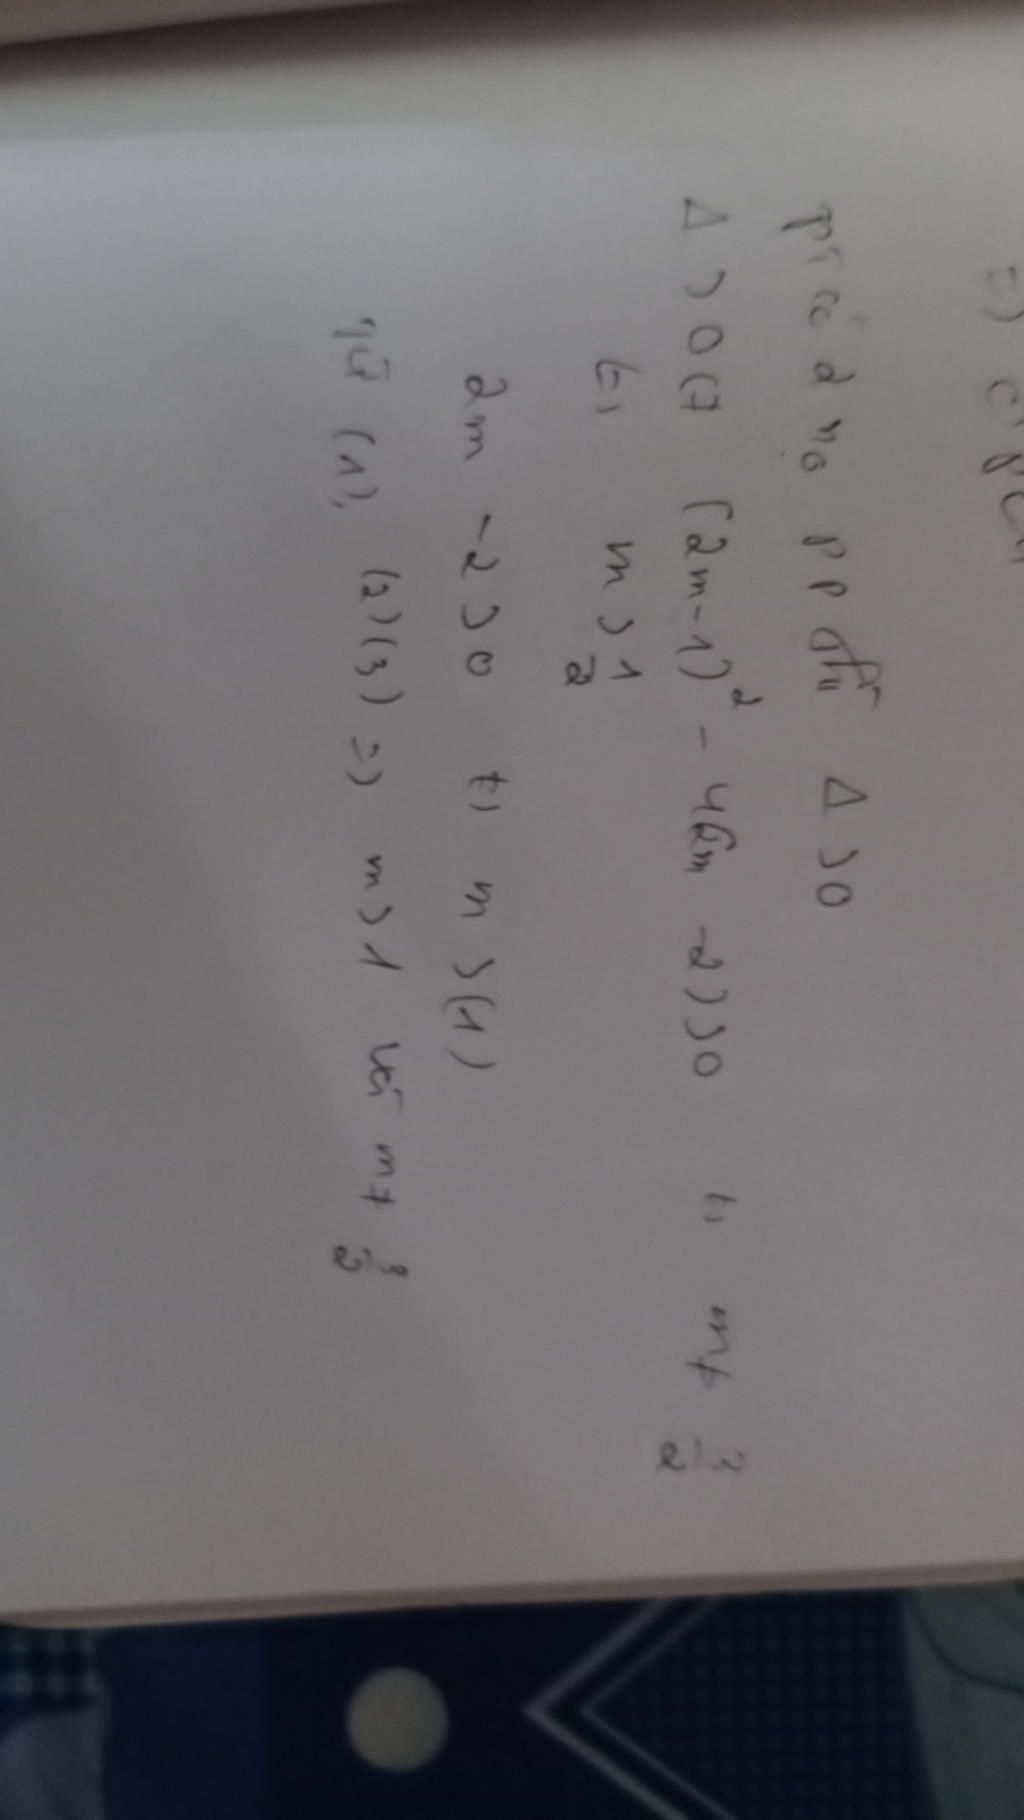 =)
pt có 2 no pb Δ > 0
Δ > 0 (7 (2m-1)² - 4(2m -2) > 0 t, m≠ 3/2
t, m > 1/2
2m -2 > 0 t, m > (1)
Từ (1), (2) (3) =) m > 1 và m≠ 3/2